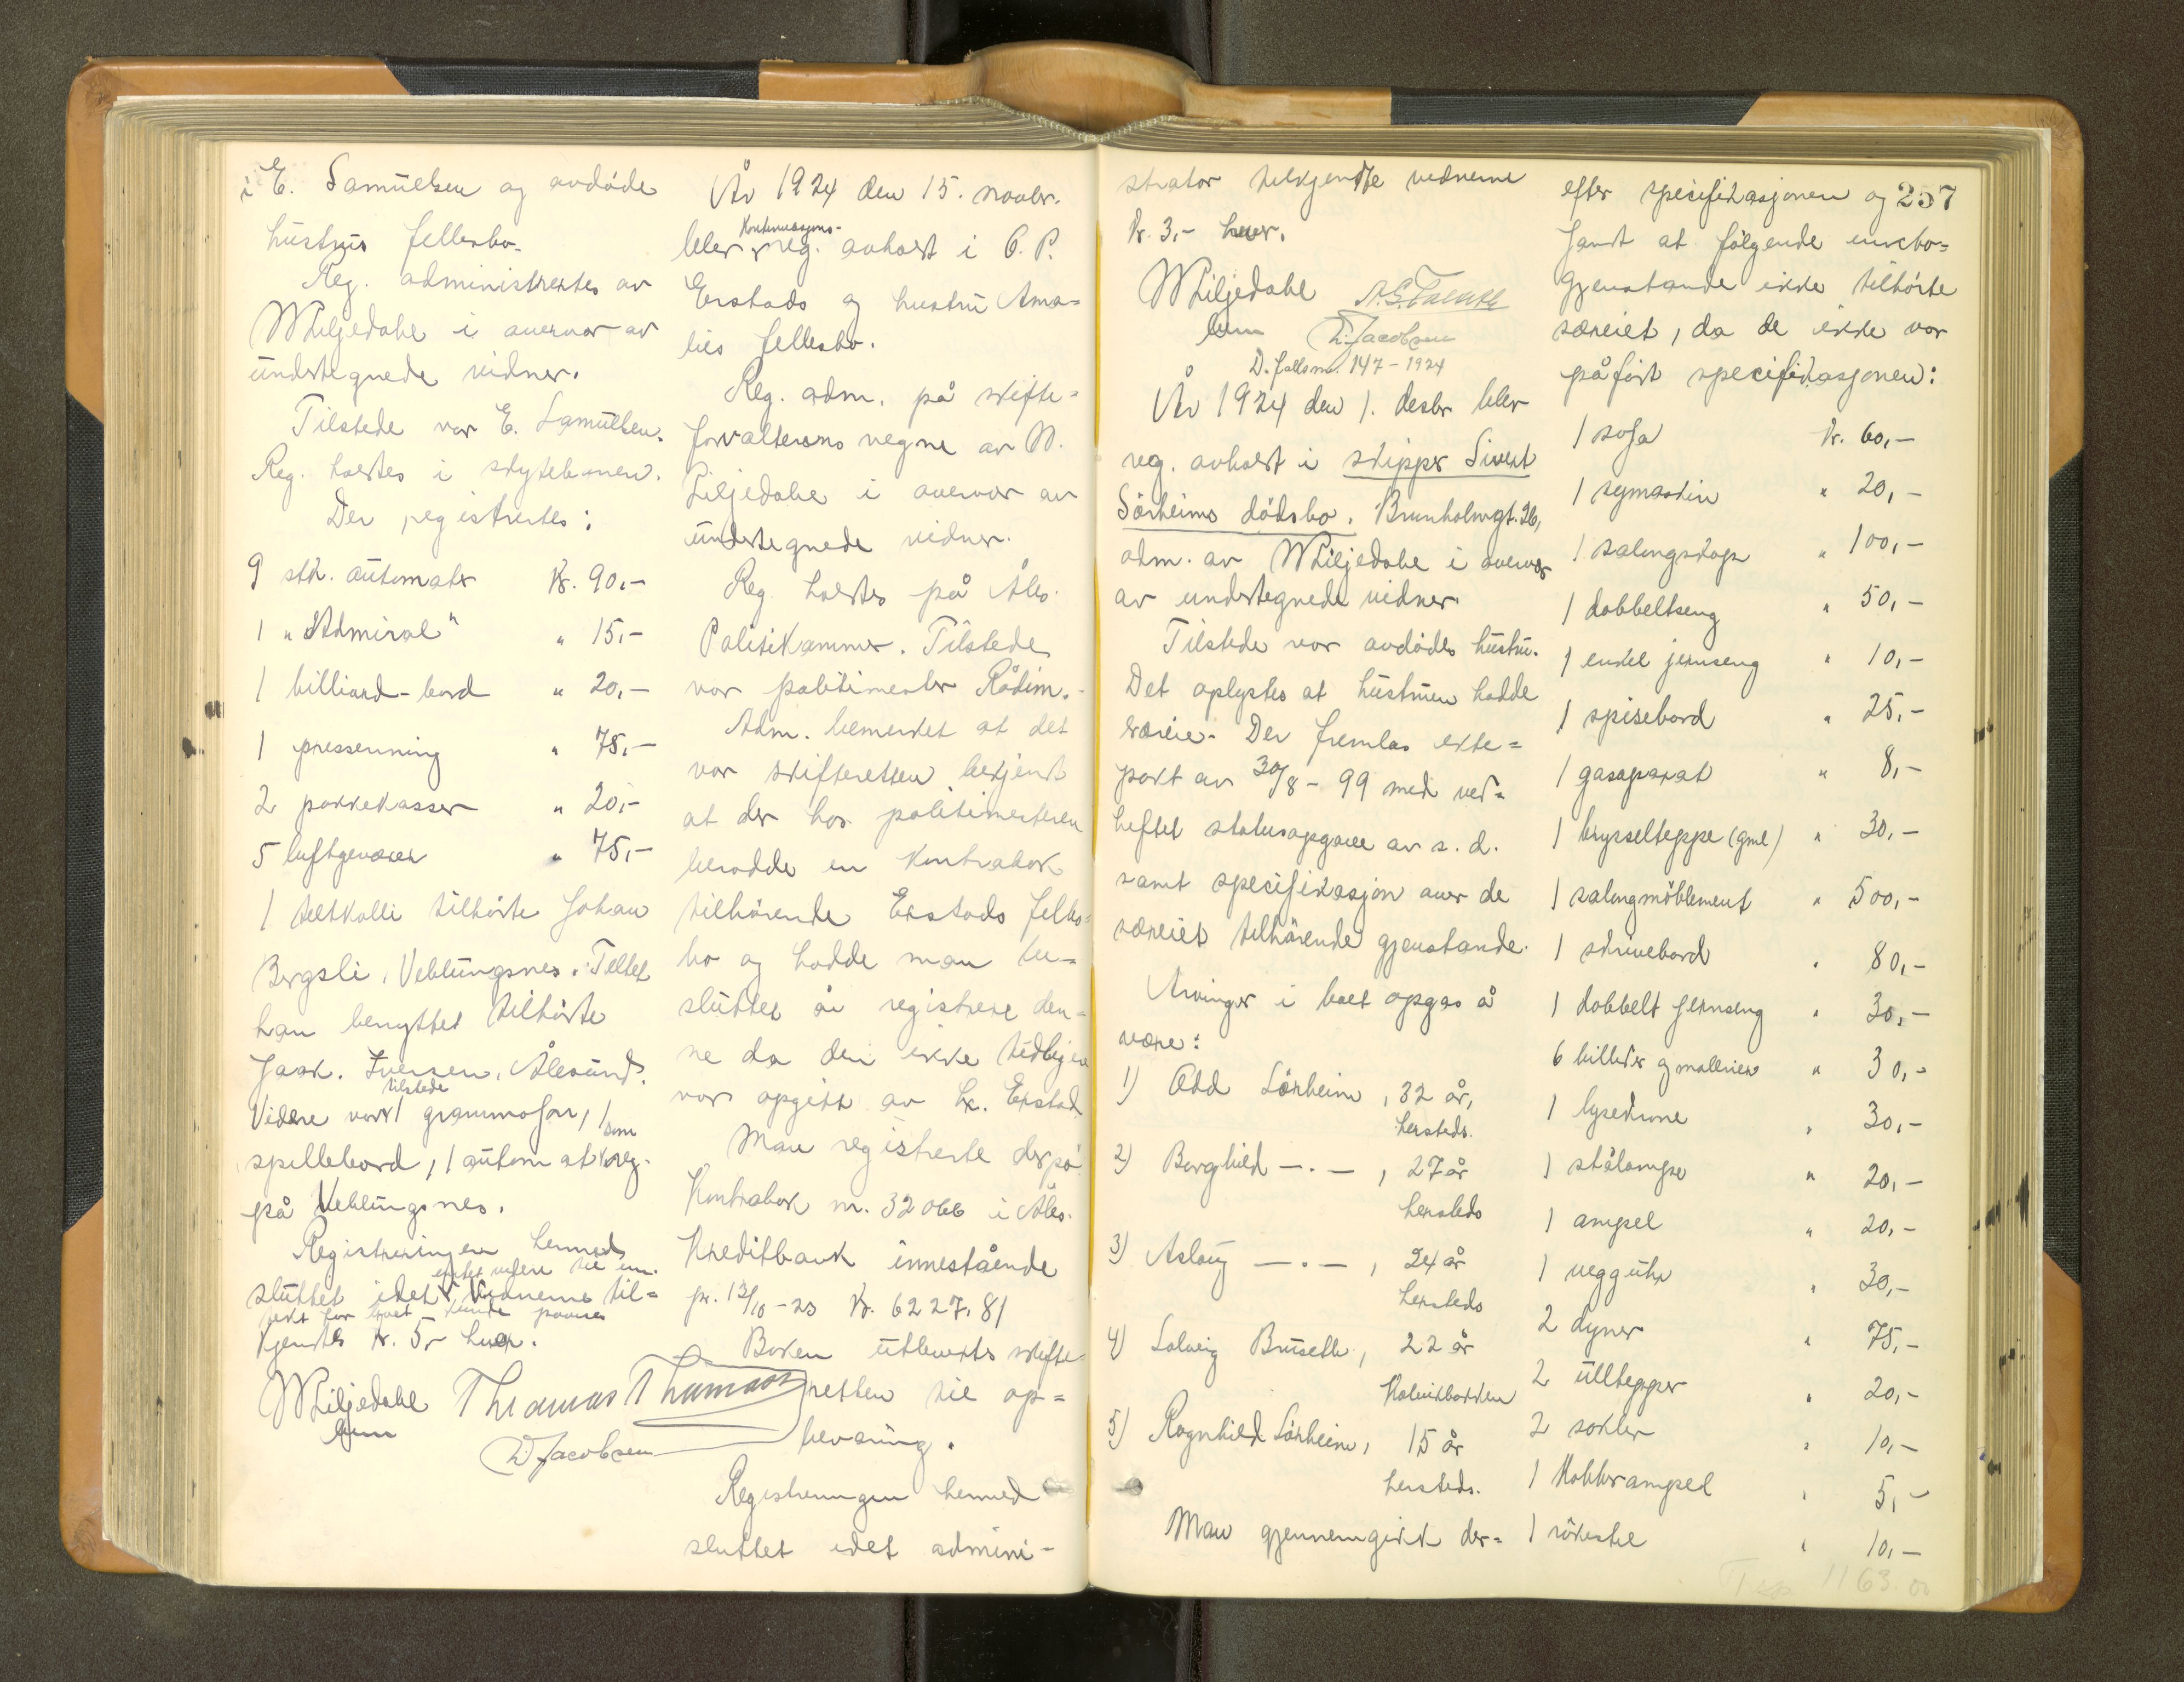 i E. Samuelsen og avdøde
hustrus fellesbo.
Reg. administrertes av
W Liljedahl i overvær av
undertegnede vidner.
Tilstede var E. Samuelsen.
Reg. holdtes i skytebanen.
Der registrertes:
9 stk. automater Kr. 90,-
1 " "Admiral" " 15,-
1 billiard-bord " 20,-
1 pressenning " 75,-
2 pakkekasser " 20,-
5 luftgeværer " 75,-
1 teltkolli tilhørte Johan
Bergsli, Veblungsnes. Teltet
han benyttet tilhørte
Jaak. Iversen, Ålesund.
tilstede
Videre var 1 grammofon, 1
som
spillebord, 1 automat reg.
på Veblungsnes.
Registreringen hermed
intet videre til inn-
sluttet idet vidnerne til-
tekt for boet kunde påvises
kjendtes kr. 5,- hver.
W Liljedahl Thomas Thomassen
L. Jacobsen
År 1924 den 15. novbr.
Kontinuasjons-
blev reg. avholdt i O. P.
Erstads og hustru Ama=
lies fellesbo.
Reg. adm. på skifte=
forvalterens vegne av W.
Liljedahl i overvær av
undertegnede vidner.
Reg. holdtes på Åles.
Politikammer. Tilstede
var politimester Rådim.
Adm. bemerket at det
var skifteretten bekjendt
at der hos politimesteren
berodde en kontrabok
tilhørende Erstads felles=
bo og hadde man be=
sluttet å registrere den=
ne da den ikke tidligere
var opgitt av hr. Erstad.
Man registrerte derpå:
Kontrabok nr. 32066 i Åles.
Kreditbank innestående
pr. 13/10-23 Kr. 6227,81
Boken utlevertes skifte-
retten til op=
bevaring.
Registreringen hermed
sluttet idet admini-
strator tilkjendte vidnerne
kr. 3,- hver.
W Liljedahl
L. Jacobsen
D. fallsnr. 147-1924
År 1924 den 1. desbr. blev
reg. avholdt i skipper Sivert
Sörheims dödsbo. Brunholmgt. 26,
adm. av W Liljedahl i overvær
av undertegnede vidner.
Tilstede var avdødes hustru.
Det oplystes at hustruen hadde
særeie. Der fremlas ekte=
pakt av 30/8-99 med ved=
heftet statusopgave av s. d.
samt specifikasjon over de
særeiet tilhørende gjenstande.
Arvinger i boet opgas å
være:
1) Odd Sörheim, 32 år,
hersteds.
2) Borghild —.—, 27 år
hersteds
3) Aslaug —.—, 24 år
hersteds
4) Solveig Bruseth, 22 år
5) Ragnhild Sörheim, 15 år
hersteds.
Man gjennemgikk der=
257
efter specifikasjonen og
fandt at følgende innbo=
gjenstande ikke tilhørte
særeiet, da de ikke var
påført specifikasjonen:
1 sofa kr. 60,-
1 symaskin " 20,-
1 salongskap " 100,-
1 dobbeltseng " 50,-
1 enkel jernseng " 10,-
1 spisebord " 25,-
1 gasaparat " 8,-
1 brysselteppe (gml) " 30,-
1 salongmöblement " 500,-
1 skrivebord " 80,-
1 dobbelt jernseng " 30,-
6 billeder og mallerier " 30,-
1 lysekrone " 30,-
1 stålampe " 20,-
1 ampel " 20,-
1 vegguhr " 30,-
2 dyner " 75,-
2 ulltepper " 20,-
2 sokler " 10,-
1 kobberampel " 5,-
1 rökestel " 10,-
1163.00